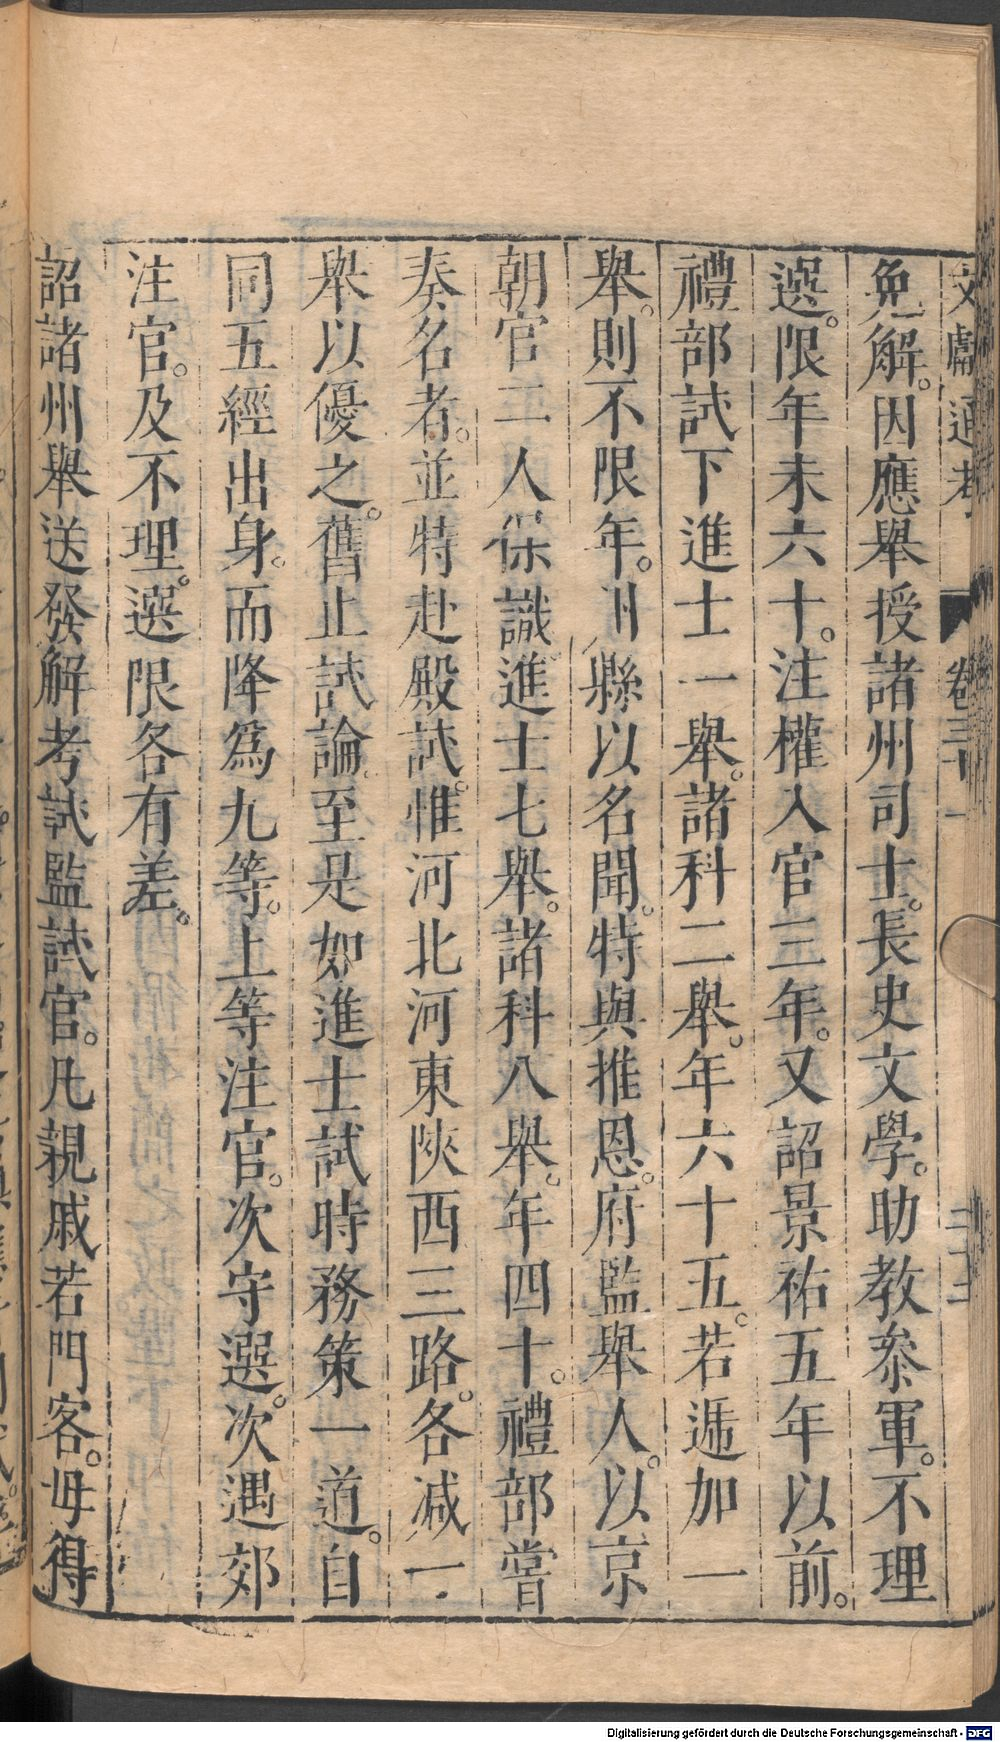 文獻通考 卷三十一
免解。因應舉授諸州司士。長史文學。助教叅軍。不理
選。限年未六十。注權入官三年。又詔景祐五年以前。
禮部試下進士一舉。諸科二舉。年六十五。若遞加一
舉。則不限年。州縣以名聞。特與推恩。府監舉人。以京
朝官二人保識進士七舉。諸科八舉。年四十。禮部嘗
奏名者。並特赴殿試。惟河北河東陝西三路。各減一
舉以優之。舊止試論。至是如進士試時務策一道。自
同五經出身。而降爲九等。上等注官。次守選。次遇郊
注官。及不理。選限各有差。
詔諸州舉送發解考試監試官。凡親戚若門客。毋得
Digitalisierung gefördert durch die Deutsche Forschungsgemeinschaft - DFG